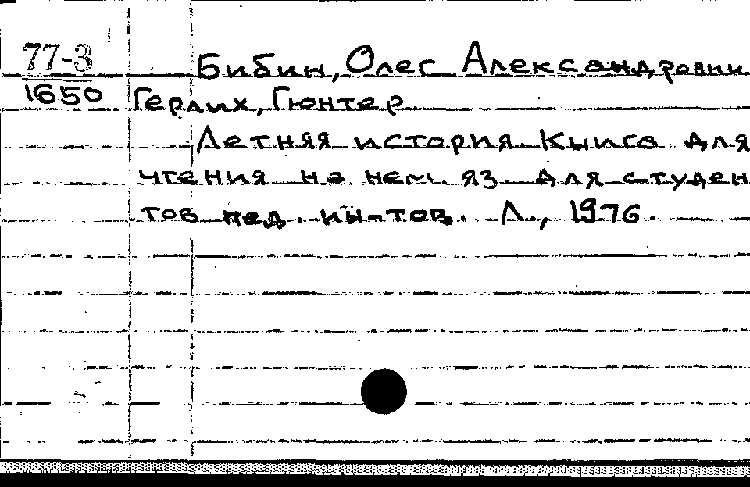 77-3
1650
Бибин, Олег Александрович
Герлих, Гюнтер
Летняя история Книга для
чтения на нем. яз для студен
тов пед. ин-тов. Л., 1976.